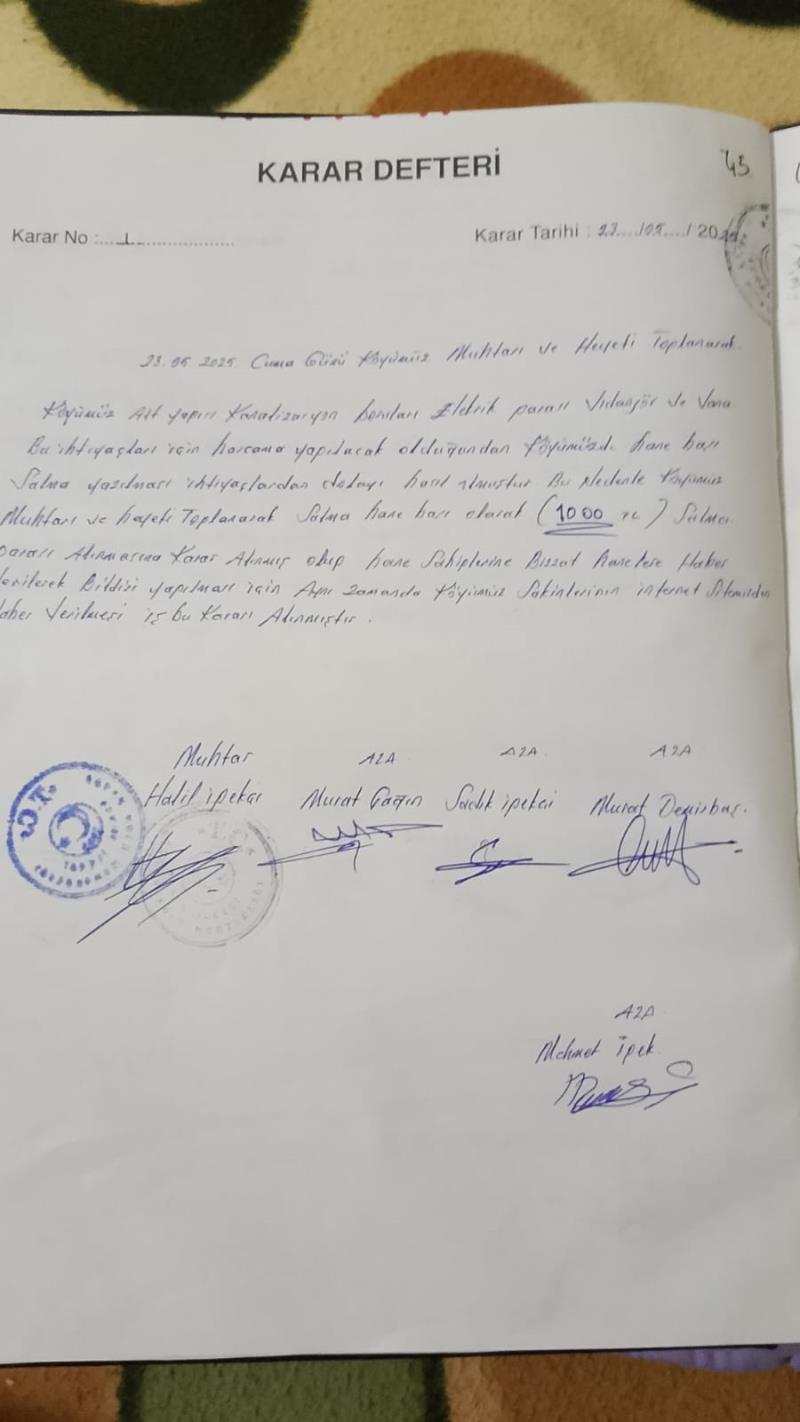 KARAR DEFTERİ
43
Karar No : 1
Karar Tarihi : 23 / 05 / 2025
23.05.2025 Cuma Günü Köyümüz Muhtarı ve Heyeti Toplanarak
Köyümüz Alt yapısı Kanalizasyon boruları Elektrik parası Vidanjör ve Vana
Bu ihtiyaçları için harcama yapılacak olduğundan Köyümüzde hane başı
Salma yazılması ihtiyaçlardan dolayı hasıl olmuştur Bu Nedenle Köyümüz
Muhtarı ve heyeti Toplanarak Salma hane başı olarak ( 1000 TL ) Salma
parası Alınmasına Karar Alınmış olup hane Sahiplerine Bizzat hanelere Haber
verilerek Bildiri yapılması için Aynı Zamanda Köyümüz Sakinlerinin internet Sitemizden
Haber Verilmesi iş bu Kararı Alınmıştır.
Muhtar AZA AZA AZA
Halil ipekçi Murat Sadık ipekçi Murat Demirbaş.
T.C.
AZA
Mehmet İpek